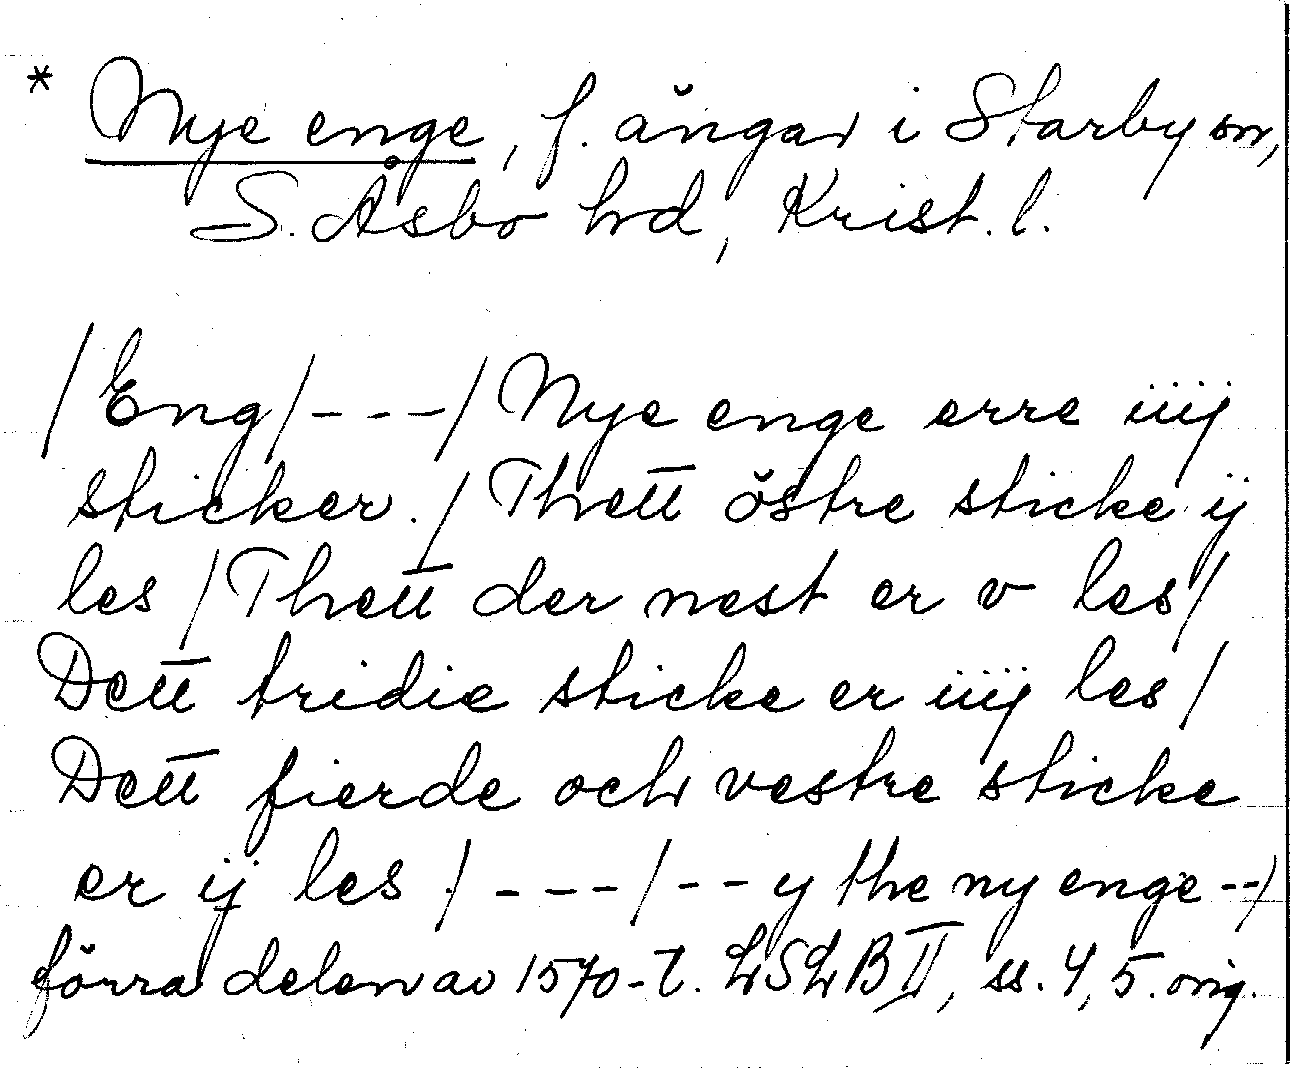 * Nye enge, f. ängar i Starby sn,
S. Åsbo hd, Krist. l.
/Eng/---/Nye enge erre iiij
sticker./Thett östre sticke ij
les/Thett der nest er v les/
Dett tridie sticke er iiij les/
Dett fierde och vestre sticke
er ij les/---/--y the ny enge--/
förra delen av 1570-t. LSLB II, ss. 4, 5. orig.